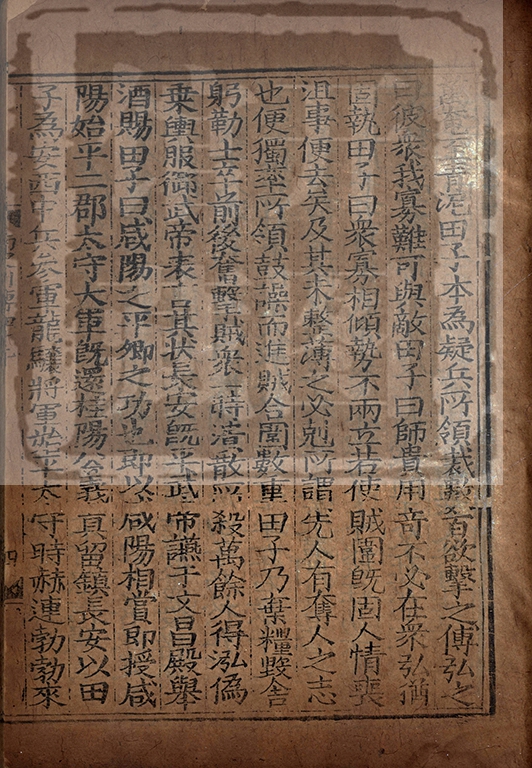 青泥田子本為疑兵所領裁數百欲擊之傅弘之
曰彼衆我寡難可與敵田子曰師貴用奇不必在衆弘猶
固執田子曰衆寡相傾勢不兩立若使賊圍旣固人情喪
沮事便去矣及其未整薄之必剋所謂先人有奪人之志
也便獨率所領鼓噪而進賊合圍數重田子乃棄糧毀舍
躬勒士卒前後奮擊賊衆一時潰散所殺萬餘人得泓偽
乗輿服御武帝表言其狀長安旣平武帝讌于文昌殿舉
酒賜田子曰咸陽之平卿之功也即以咸陽相賞即授咸
陽始平二郡太守大軍旣還桂陽公義真留鎮長安以田
子為安西中兵參軍龍驤將軍始平太守時赫連勃勃來